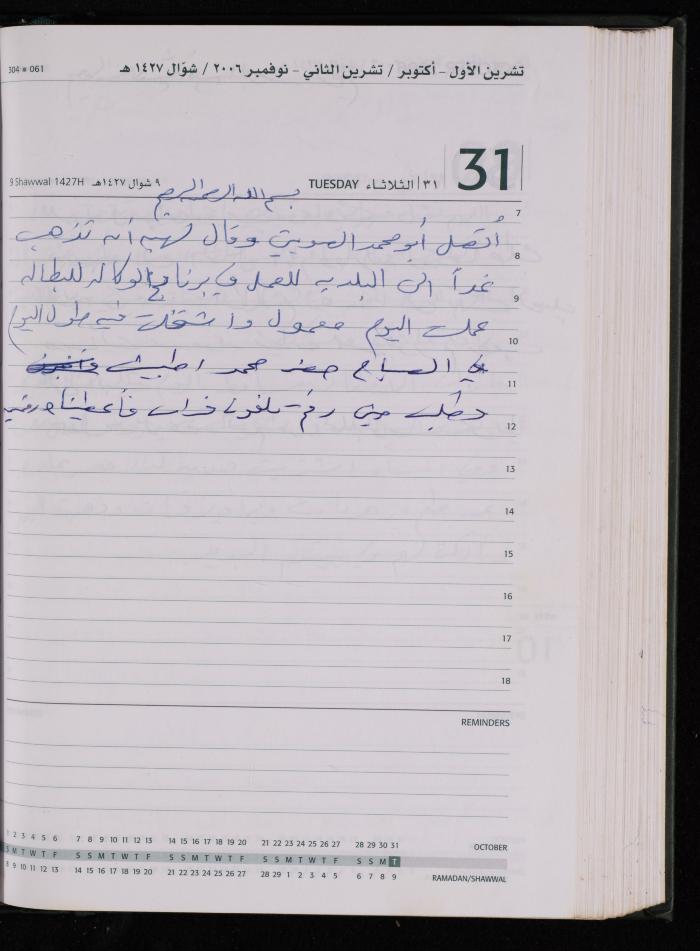 تشرين الأول - أكتوبر / تشرين الثاني - نوفمبر ٢٠٠٦ / شوّال ١٤٢٧ هـ
304 * 061
31
٣١ الثلاثاء TUESDAY
٩ شوال ١٤٢٧هـ 9 Shawwal 1427H
بسم الله الرحمن الرحيم
7
أتصل أبو محمد الصويتي وقال لهيم أنه تذهب
8
غداً الى البلديه للعمل في برنامج الوكاله للبطاله
9
عملت اليوم معمول واشتغلت فيه طول اليوم
10
في الصباح حضر محمد اطبيش
11
وطلب مني رقم تلفون فراس فأعطيناه
12
13
14
15
16
17
18
REMINDERS
1 2 3 4 5 6 7 8 9 10 11 12 13 14 15 16 17 18 19 20 21 22 23 24 25 26 27 28 29 30 31 OCTOBER
S M T W T F S S M T W T F S S M T W T F S S M T W T F S S M T
8 9 10 11 12 13 14 15 16 17 18 19 20 21 22 23 24 25 26 27 28 29 1 2 3 4 5 6 7 8 9 RAMADAN/SHAWWAL